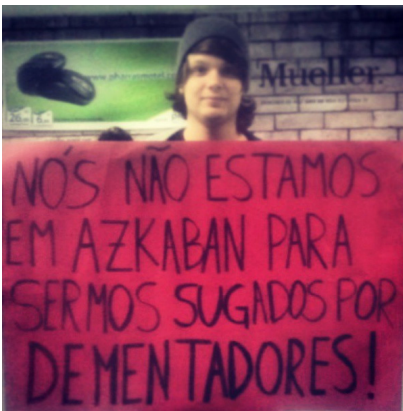 Mueller.
NÓS NÃO ESTAMOS
EM AZKABAN PARA
SERMOS SUGADOS POR
DEMENTADORES!